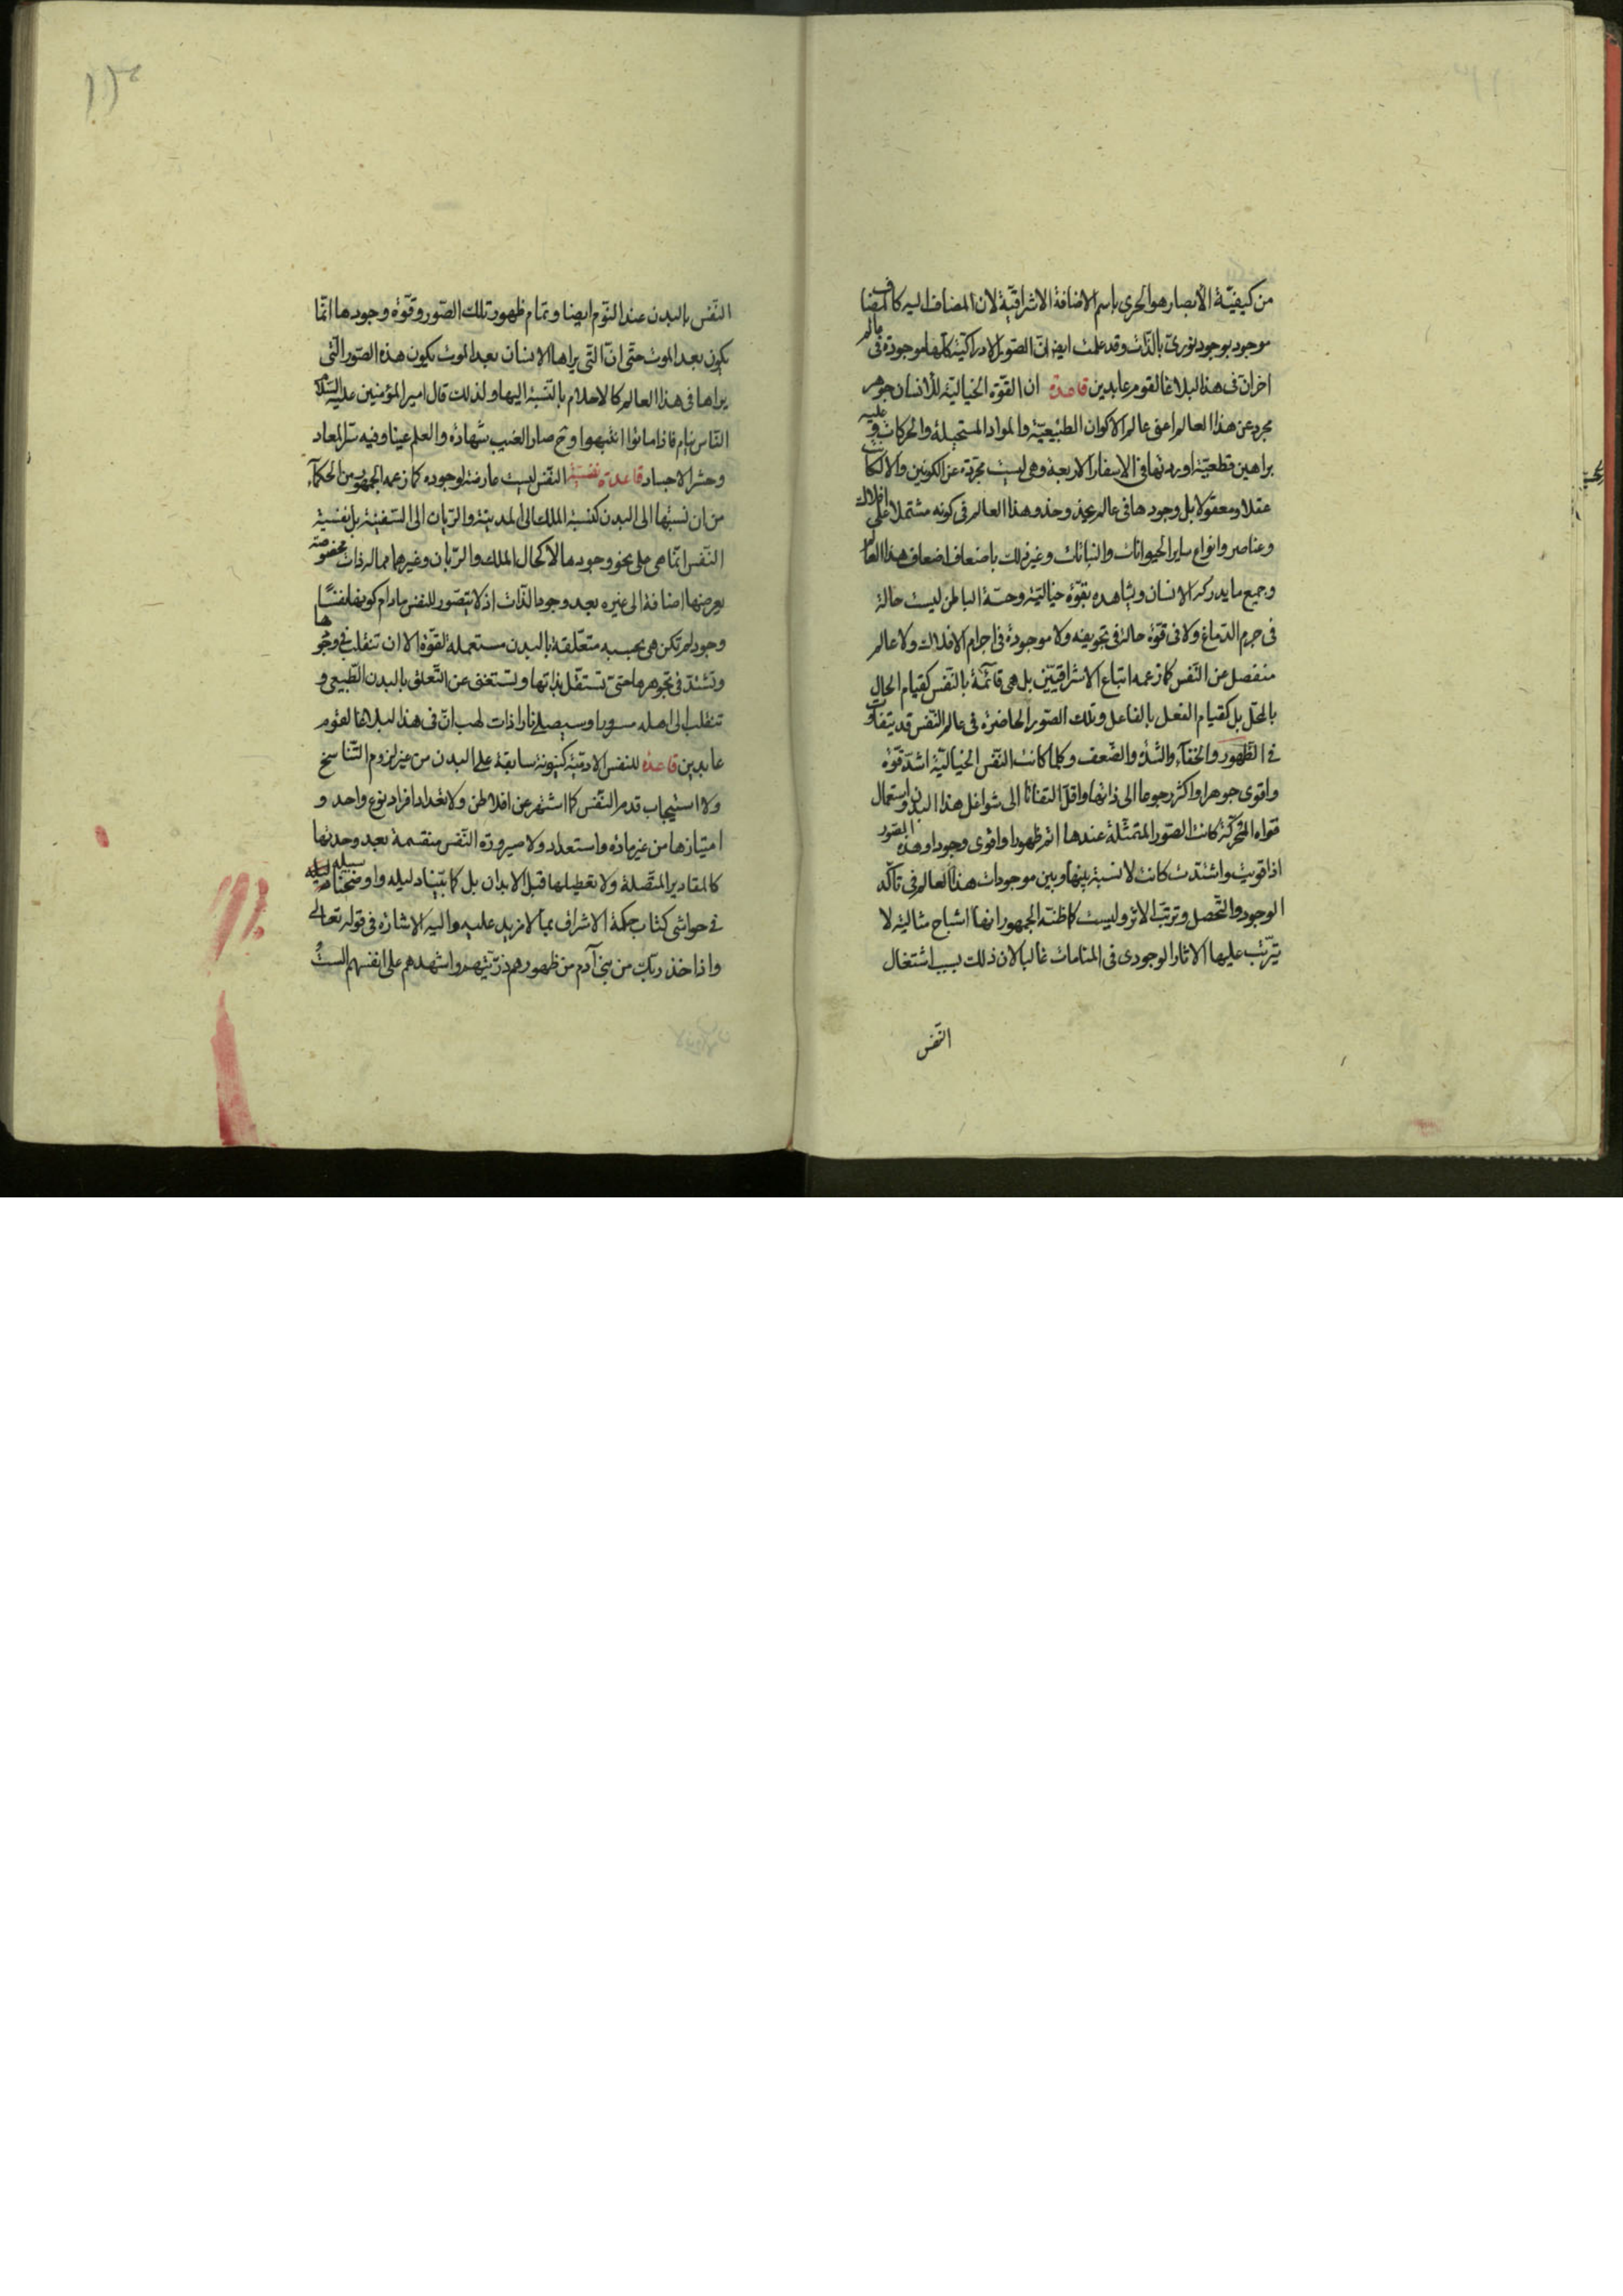 من كيفيّة الابصار هو الحرى باسم الاضافة الاشراقيّة لان المضاف اليه كالمضاف
موجود بوجود نورىّ بالذّات وقد علمت ايض انّ الصّور الادراكيّة كلّها موجودة فى عالم
اخر انّ فى هذا لبلاغا لقوم عابدين قاعدة ان القوّة الخياليّة للانسان جوهر
مجرد عن هذا العالم اعنى عالم الاكوان الطبيعيّة والمواد المستحيلة والحركات وعليه
براهين قطعيّة اوردتها فى الاسفار الاربعة وهى ليست مجرّدة عن الكونين والا لكانت
عقلا ومعقولا بل وجودها فى عالم يحذو حذو هذا العالم فى كونه مشتملا على افلاك
وعناصر وانواع ساير الحيوانات والنباتات وغير ذلك باضعاف اضعاف هذا العالم
وجميع ما يدركه الانسان ويشاهده بقوّة خياليّة وحسّه الباطن ليست حالة
فى جرم الدّماغ ولا فى قوّة حالة فى تجويفه ولا موجودة فى اجرام الافلاك ولا عالم
منفصل عن النّفس كما زعمه اتباع الاشراقيّين بل هى قائمة بالنّفس كقيام الحال
بالمحلّ بل كقيام الفعل بالفاعل وتلك الصّور الحاضرة فى عالم النّفس قد يتفاوت
فى الظّهور والخفاء والشدّة والضّعف وكلما كانت النّفس الخياليّة اشدّ قوّة
واقوى جوهرا واكثر رجوعا الى ذاتها واقلّ التفاتا الى شواغل هذا البدن واستعمال
قواه المحرّكة كانت الصّور المتمثّلة عندها اتم ظهورا واقوى وجودا وهذه الصّور
اذا قويت واشتدّت كانت لا نسبة بينها وبين موجودات هذا العالم فى تأكّد
الوجود والتّحصل وترتّب الاثر وليست كما ظنّه الجمهور انها اشباح مثالية لا
يترتّب عليها الاثار الوجودى فى المنامات غالبا لان ذلك بسبب اشتغال
النّفس
النّفس بالبدن عند النّوم ايضا وتمام ظهور تلك الصّور وقوّة وجودها انّما
يكون بعد الموت حتى انّ التى يراها الانسان بعد الموت يكون هذه الصّور الّتى
يراها فى هذا العالم كالاحلام بالنّسبة اليها ولذلك قال امير المؤمنين عليه السّلام
النّاس نيام فاذا ماتوا انتبهوا وح صار الغيب شهادة والعلم عينا وفيه سرّ المعاد
وحشر الاجساد قاعدة نفسيّة النّفس ليست عارضة لوجوده كما زعمه الجمهور من الحكمآء
من ان نسبتها الى البدن كنسبة الملك الى المدينة والرّبان الى السّفينة بل نفسيّة
النّفس انّما هى على نحو وجودها لا كحال الملك والرّبان وغيرهما مما له ذات مخصوصة
يعرضها اضافة الى غيره بعد وجود الذّات اذ لا يتصّور للنفس مادام كونها نفسًا
وجود لم تكن هى بحسبه متعلّقة بالبدن مستعملة لقوّة الا ان تنقلب فى وجودها
وتشتدّ فى تجوهرها حتى تستقلّ بذاتها وتستغنى عن التّعلق بالبدن الطّبيعى و
تنقلب الى اهله مسرورا وسيصلى نارا ذات لهب انّ فى هذا لبلاغا لقوم
عابدين قاعدة للنفس الادميّة كينونة سابقة على البدن من غير لزوم التّناسخ
ولا استيجاب قدم النّفس كما اشتهر عن افلاطن ولا تعداد افراد نوع واحد و
امتيازها من غير مادّة واستعداد ولا صيرورة النّفس منقسمة بعد وحدتها
كالمقادير المتّصلة ولا تعطيلها قبل الابدان بل كما بيّنا دليله واوضحنا سبيله
فى حواشى كتاب حكمة الاشراف بما لا مزيد عليه واليه الاشارة فى قوله تعالى
واذ اخذ ربّك من بنى آدم من ظهورهم ذرّيّتهم واشهدهم على انفسهم الستُ